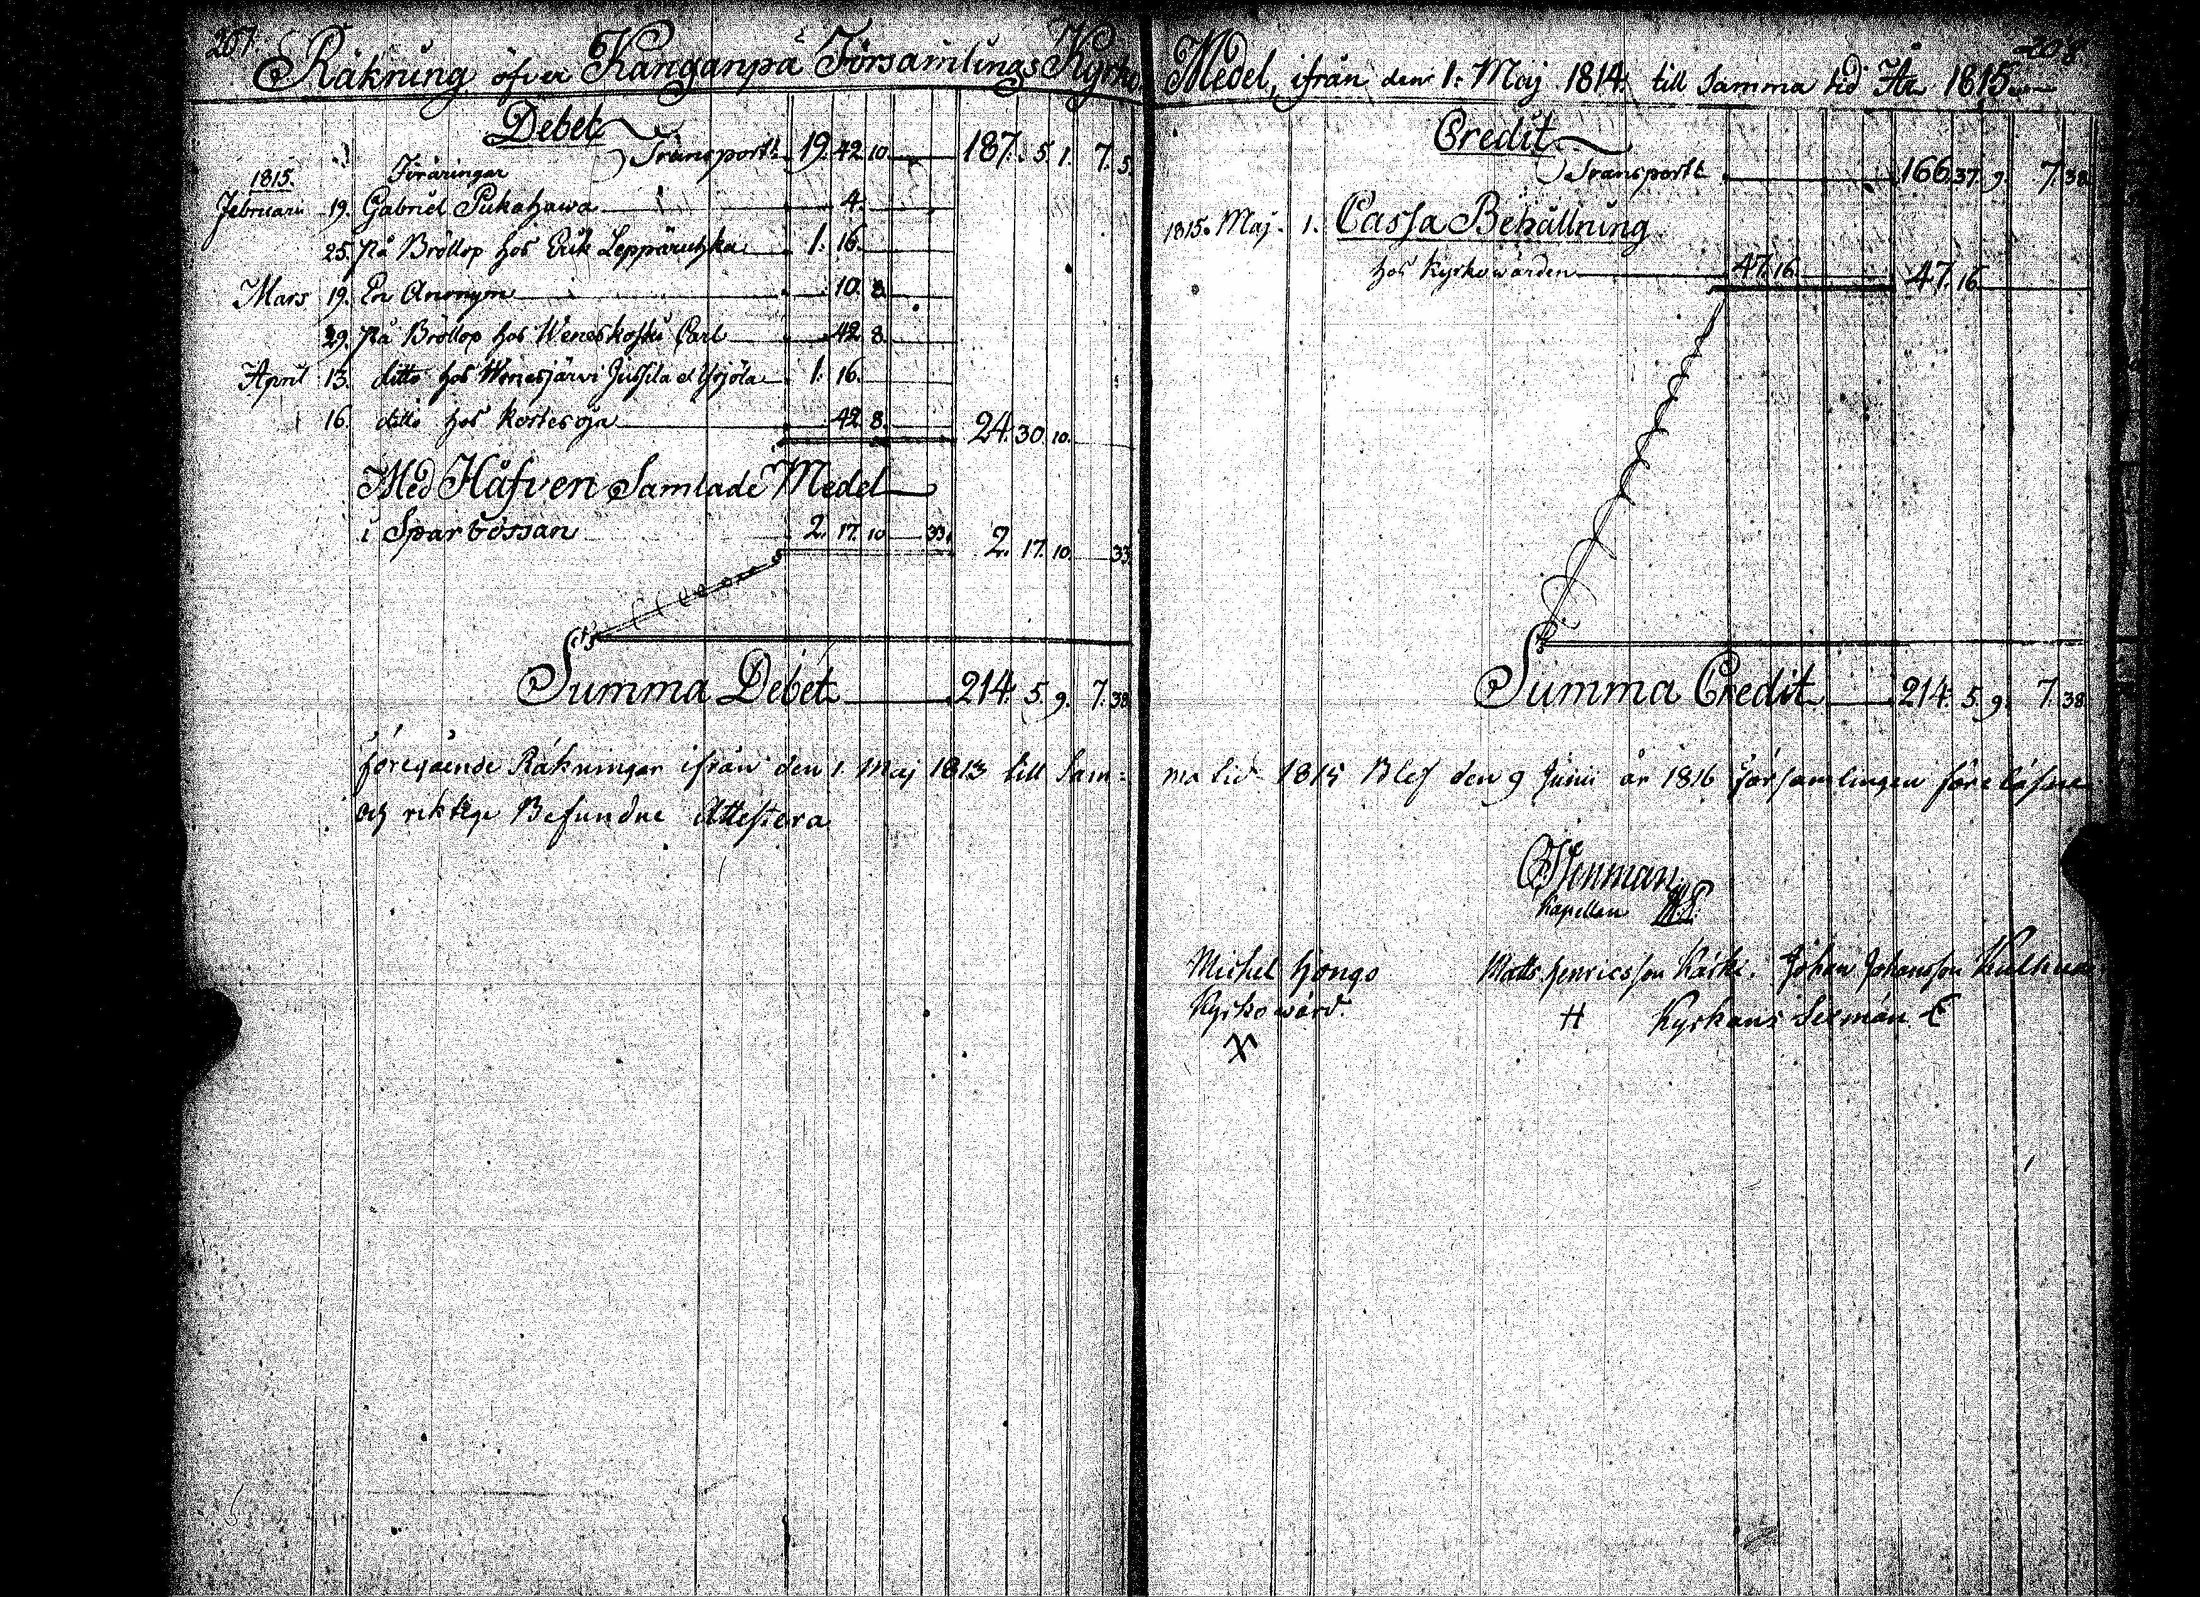 207.
Räkning öfver Kanganpä Församlings Kyrko
Debet
Transport 19. 42. 10. 187. 5. 1. 7. 5.
1815. Föräringar
Februari 19. Gabriel Pukahawa 4.
25. På Bröllop hos Erik Leppäruhka 1. 16.
Mars 19. En Anonym 10. 8.
29. På Bröllop hos Weneskoski Carl 42. 8.
April 13. ditto hos Wenesjärvi Jussila et Yrjöla 1. 16.
16. ditto hos Kortesoja 42. 8. 24. 30. 10.
Med Håfven Samlade Medel
i Sparbössan 2. 17. 10. 33. 2. 17. 10. 33.
Summa Debet 214. 5. 9. 7. 38.
föregående Räkningar ifrån den 1. Maj 1813 till Sam=
och riktige Befundne Attestera
208.
Medel, ifrån den 1. Maj 1814 till Samma tid År 1815
Credit
Transport 166. 37. 9. 7. 38.
1815. Maj. 1. Cassa Behållning
hos Kyrkowärden 47. 16. 47. 16.
Summa Credit 214. 5. 9. 7. 38.
ma tid 1815 Blef den 9 Junii år 1816 församlingen föreläsne
Kapellan
Michel Hongo Matts Henricsson Kärki. Johan Johansson
Kyrkowärd. H Kyrkans Sexmän
X